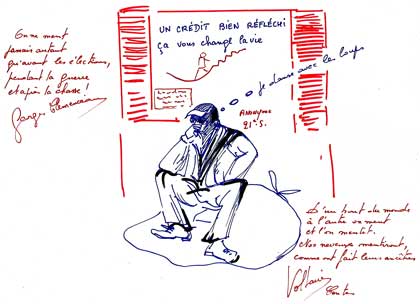 UN CRÉDIT BIEN RÉFLÉCHI
ça vous change la vie
On ne ment
jamais autant
qu'avant les élections,
pendant la guerre
et après la chasse !
Georges Clemenceau
Je danse avec les loups
Anonyme
21e S.
D'un bout du monde
à l'autre on ment
et l'on mentit.
Nos neveux mentiront,
comme ont fait leurs ancêtres
Voltaire
Contes